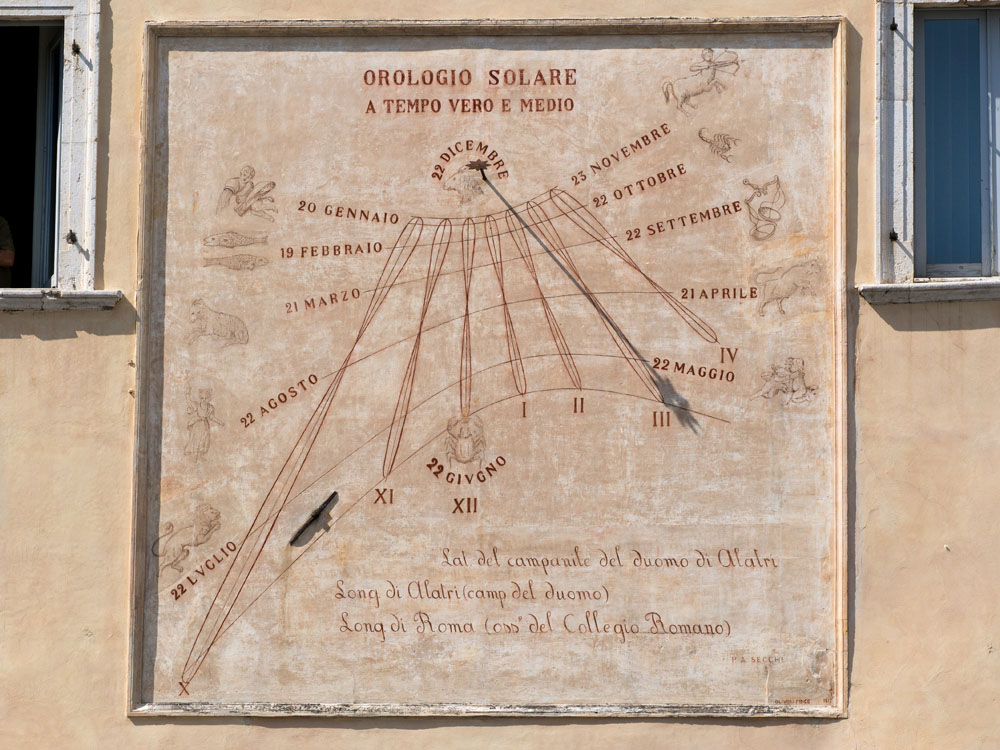 OROLOGIO SOLARE
A TEMPO VERO E MEDIO
22 DICEMBRE
23 NOVEMBRE
22 OTTOBRE
22 SETTEMBRE
20 GENNAIO
19 FEBBRAIO
21 MARZO
21 APRILE
22 MAGGIO
22 AGOSTO
22 GIVGNO
22 LVGLIO
X
XI
XII
I
II
III
IV
Lat del campanile del duomo di Alatri
Long di Alatri (camp del duomo)
Long di Roma (oss° del Collegio Romano)
P. A. SECCHI